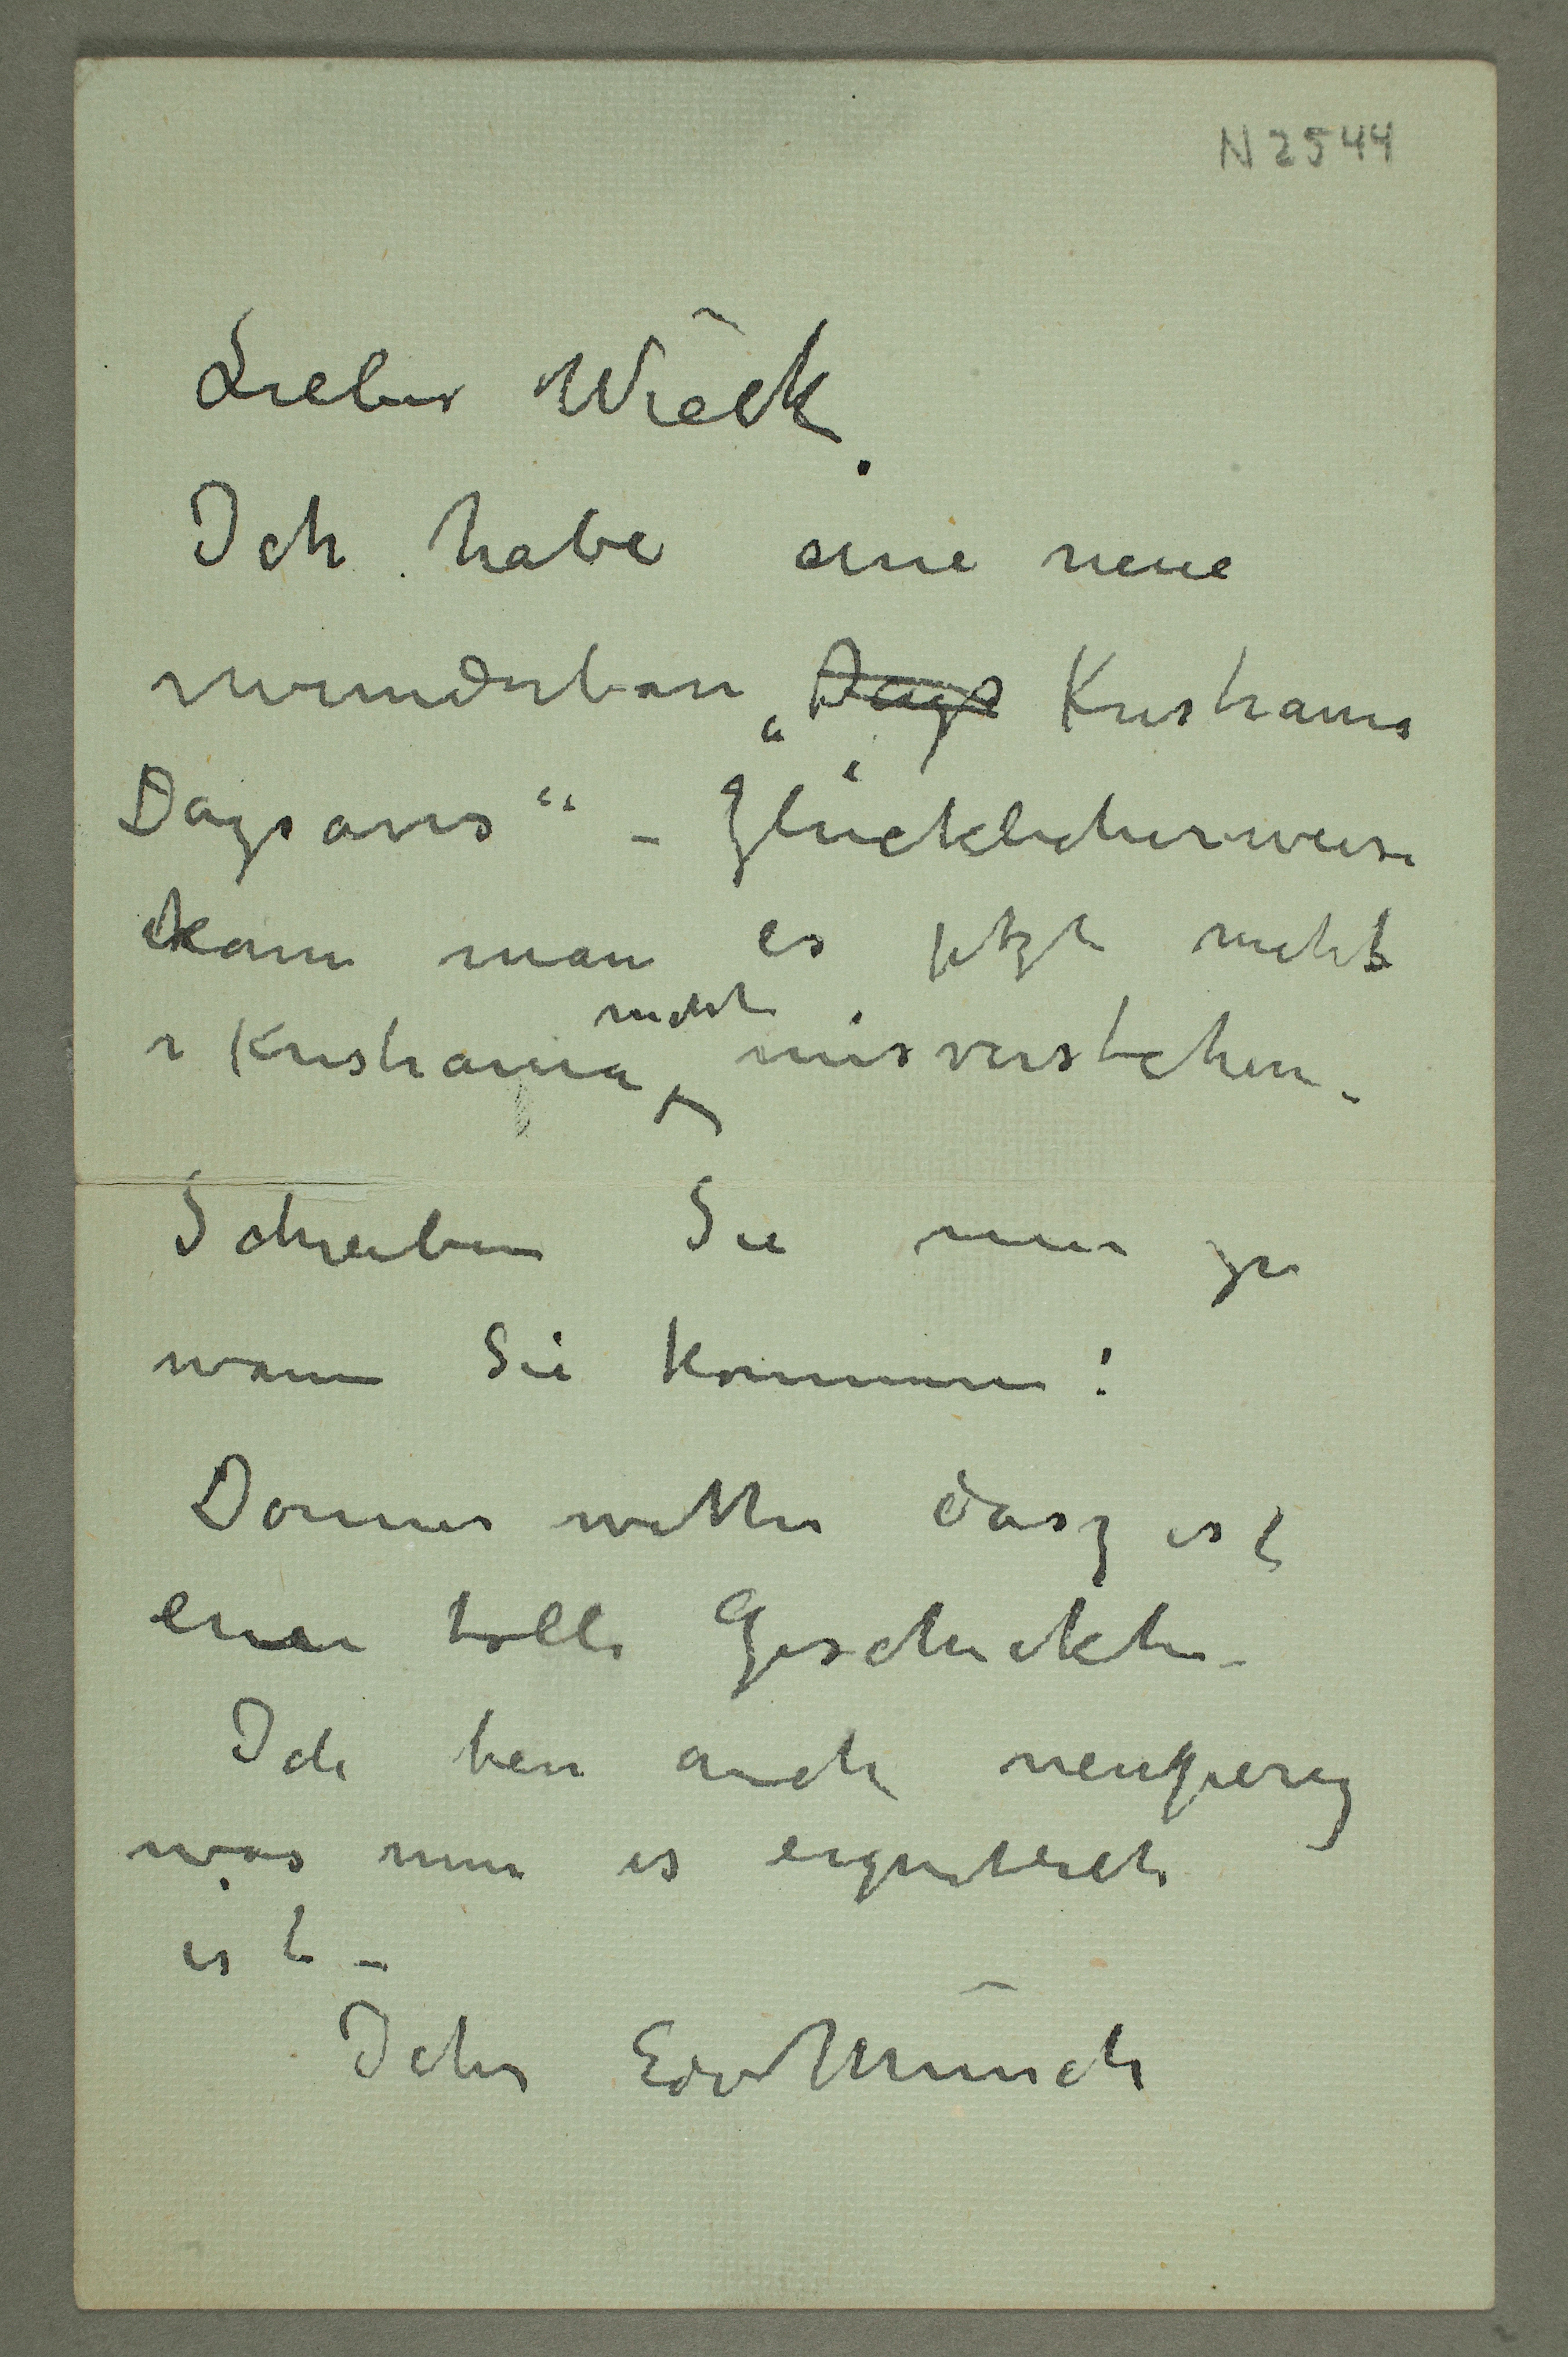 N 2544
Lieber Wieck.
Ich habe eine neue
wunderbare „Dags Kristiania
Dagsavis“ – Glücklicherweise
kann man es jetzt nicht
i Kristiania nicht misverstehen.
Schreiben Sie nun ja
wann Sie kommen!
Donnerwetter dasz ist
eine tolle Geschickte –
Ich bin auch neugierig
was nun es eigentlich
ist –
Ihr Edv Munch